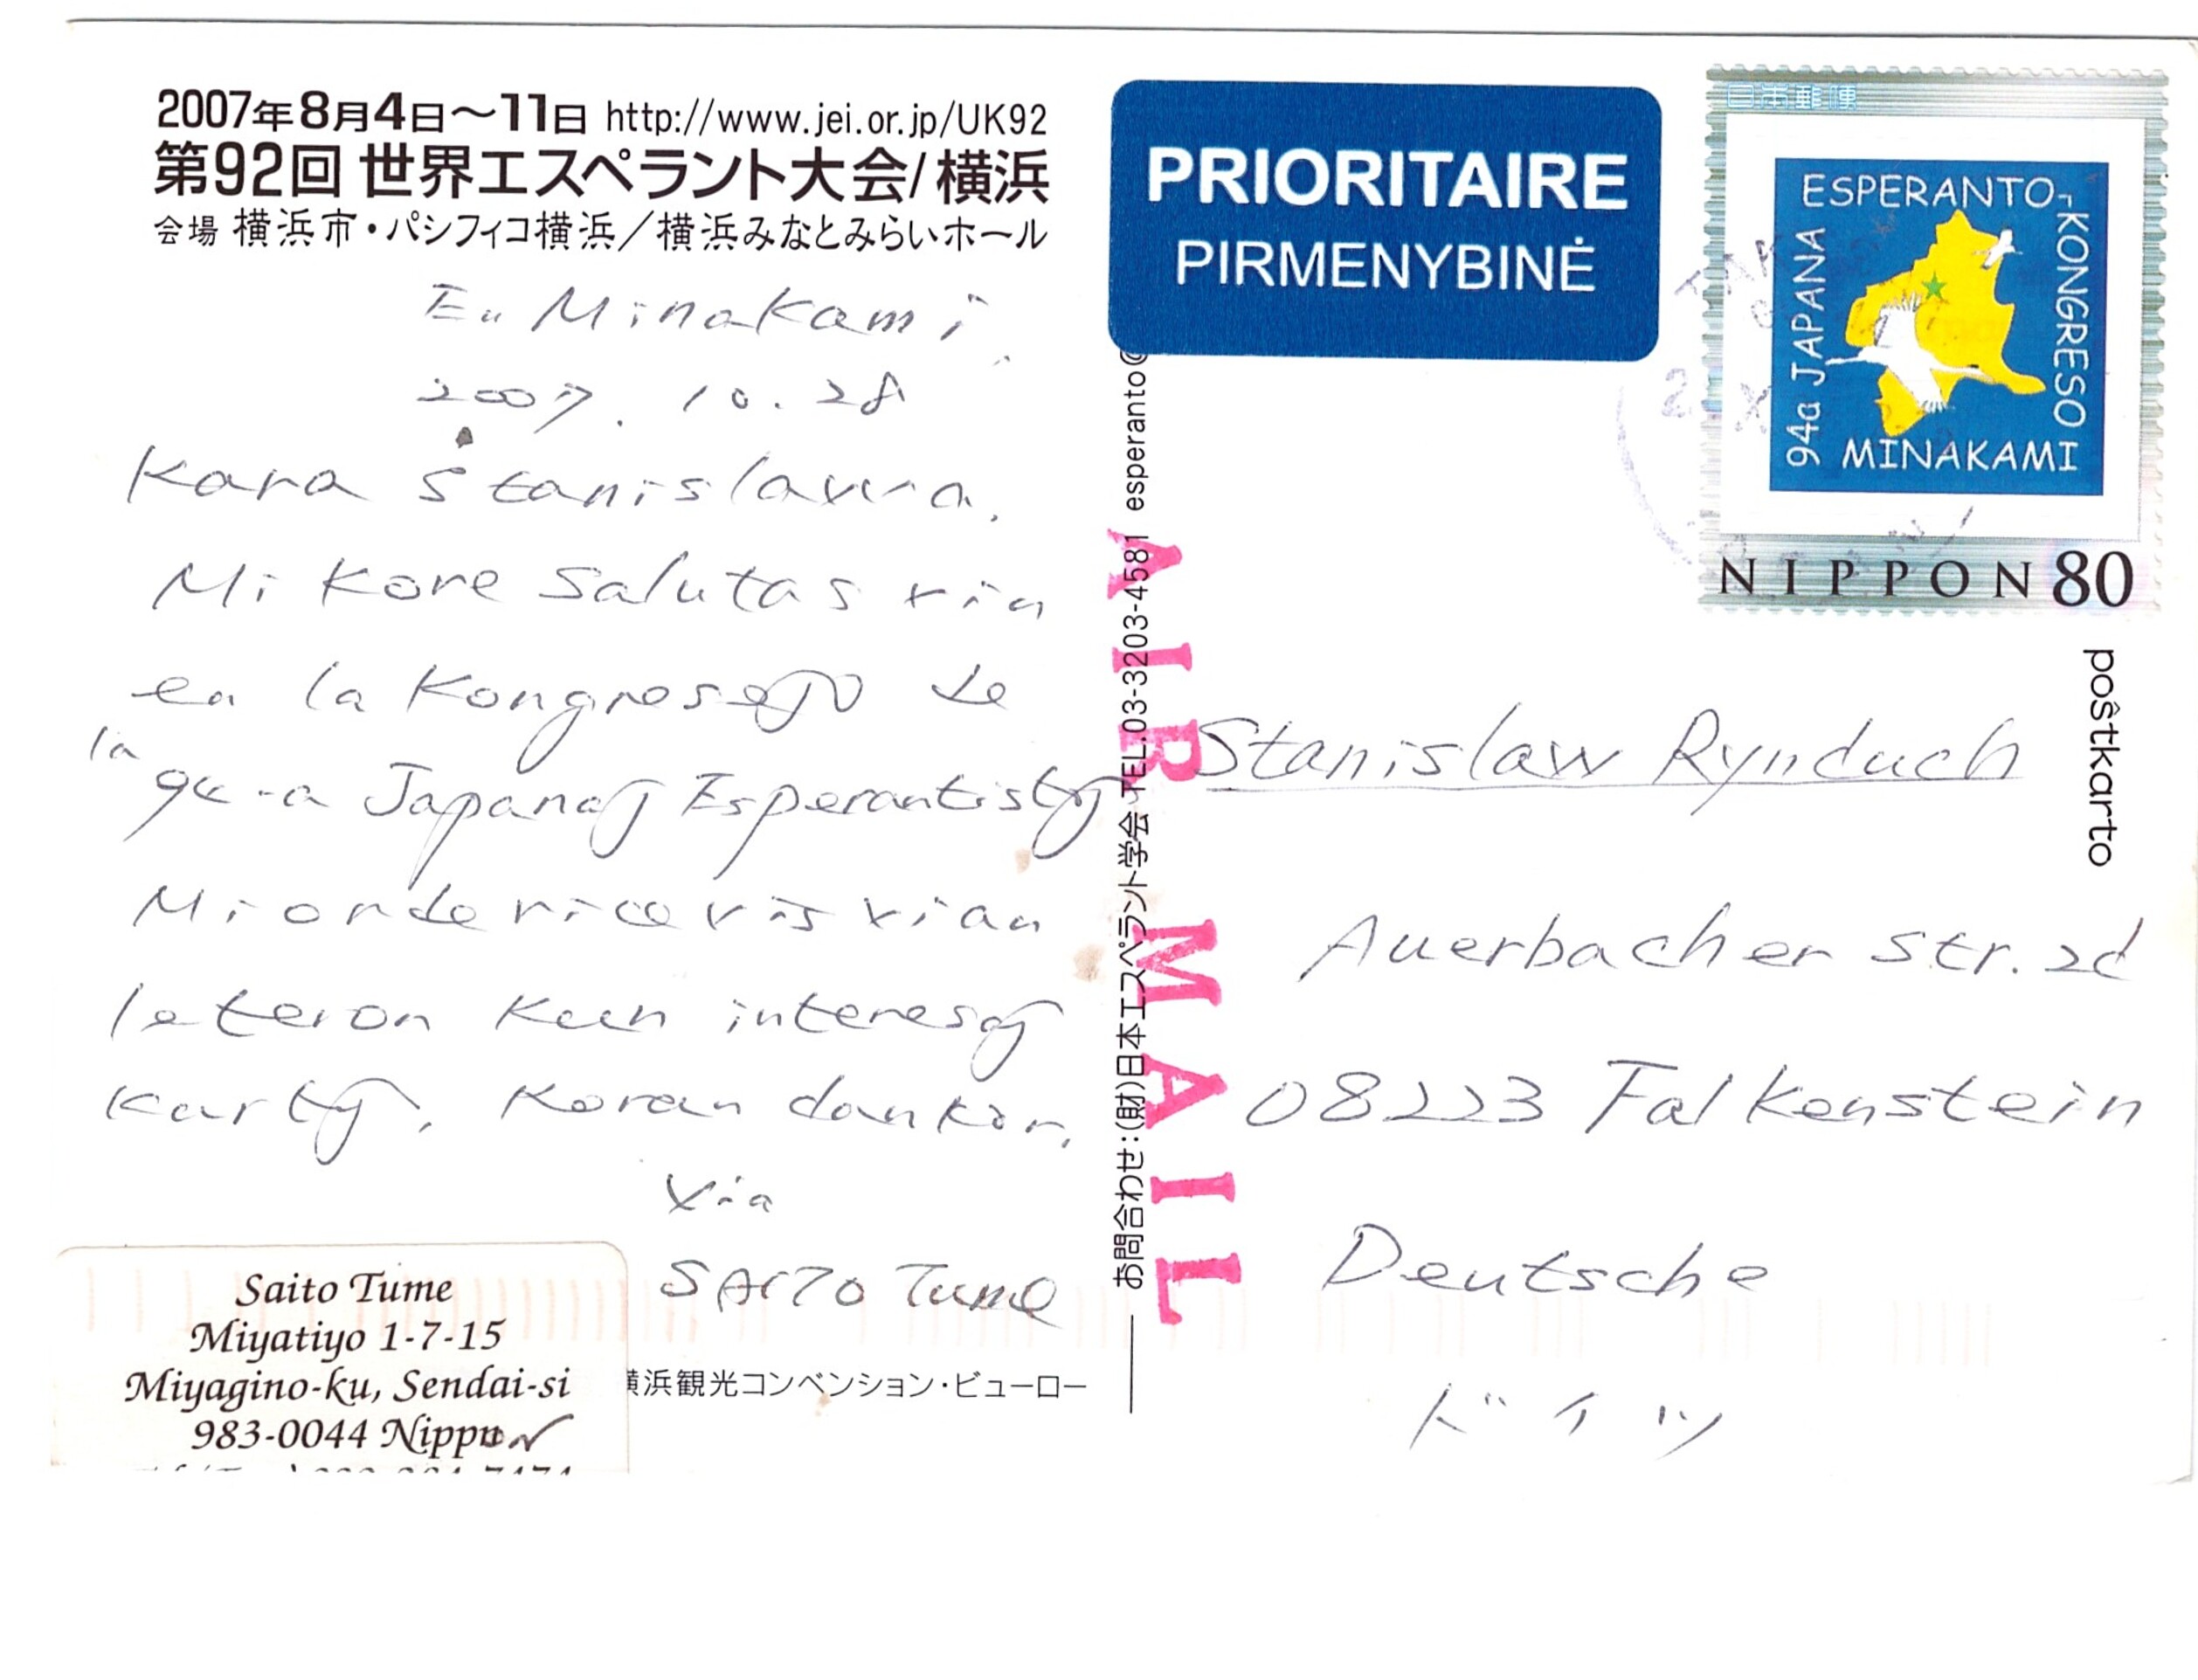 2007年8月4日〜11日 http://www.jei.or.jp/UK92
第92回 世界エスペラント大会/横浜
会場 横浜市・パシフィコ横浜／横浜みなとみらいホール
En Minakami,
2007. 10. 28
Kara Stanislawa,
Mi kore salutas vin
en la kongresejo de
la 94-a Japanaj Esperantistoj
Mi ricevis vian
leteron kun interesaj
kartoj, Koran dankon,
Via
SAITO Tume
Saito Tume
Miyatiyo 1-7-15
Miyagino-ku, Sendai-si
983-0044 Nippon
横浜観光コンベンション・ビューロー
お問合わせ:(財)日本エスペラント学会 TEL.03-3203-4581 esperanto@
AIR MAIL
PRIORITAIRE
PIRMENYBINĖ
日本郵便
94a JAPANA
ESPERANTO-
KONGRESO
MINAKAMI
NIPPON 80
poŝtkarto
Stanislaw Rynduch
Auerbacher Str. 2d
08223 Falkenstein
Deutsche
ドイツ